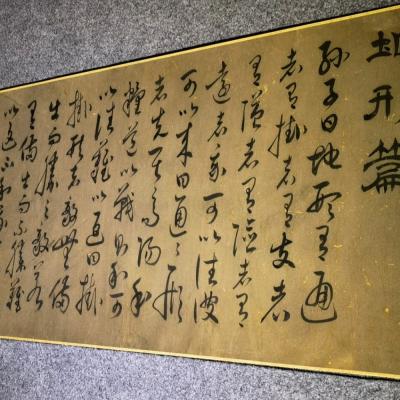 地形篇
孫子曰地形有通
者有掛者有支者
有隘者有險者有
遠者我可以往彼
可以來曰通々形
者先居高陽利
糧道以戰則利可
以往難以返曰掛
掛形者敵無備
出而勝之敵若
有備出而不勝難
以返不利